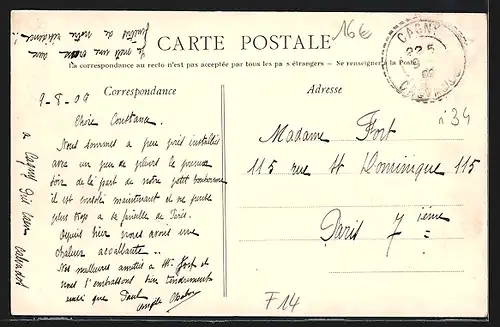 La croix sur une
fenêtre de notre résidence !!
16€
CARTE POSTALE
La correspondance au recto n'est pas acceptée par tous les pays étrangers — Se renseigner à la Poste
CAGNY
22 5
09
CALVADOS
Correspondance
Adresse
9-8-09
Chère Constance.
Nous sommes à peu près installés
avec un peu de pleurs le premier
soir de la part de notre petit bonhomme
il est consolé maintenant et ne pense
plus trop à sa famille de Paris.
Depuis hier nous avons une
chaleur accablante..
Nos meilleures amitiés à Mr Fort et
nous t'embrassons bien tendrement
ainsi que Paul
Angèle
à Cagny près Caen Calvados
Madame Fort
115 rue St Dominique 115
Paris 7ième
n°34
F14